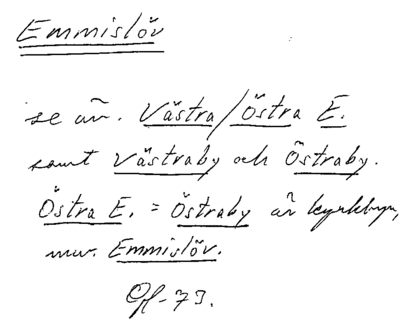 Emmislöv
se äv. Västra/Östra E.
samt Västraby och Östraby.
Östra E. = Östraby är kyrkbyn,
nuv. Emmislöv.